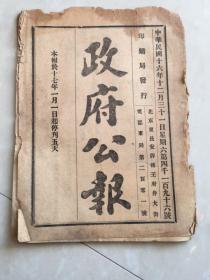 中華民國十六年十二月三十一日星期六第四千一百九十六號
政府公報
印鑄局發行
北京東長安牌樓王府井大街
電話東局第二百零一號
本報於十七年一月一日起停刊五天